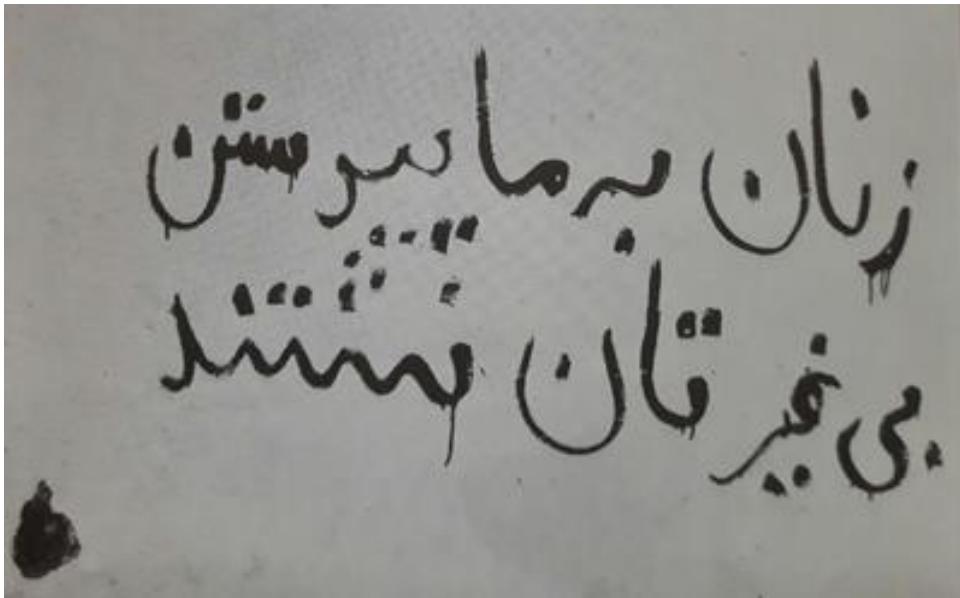 زنان به ما پیوستن
بی غیرتان نشستند